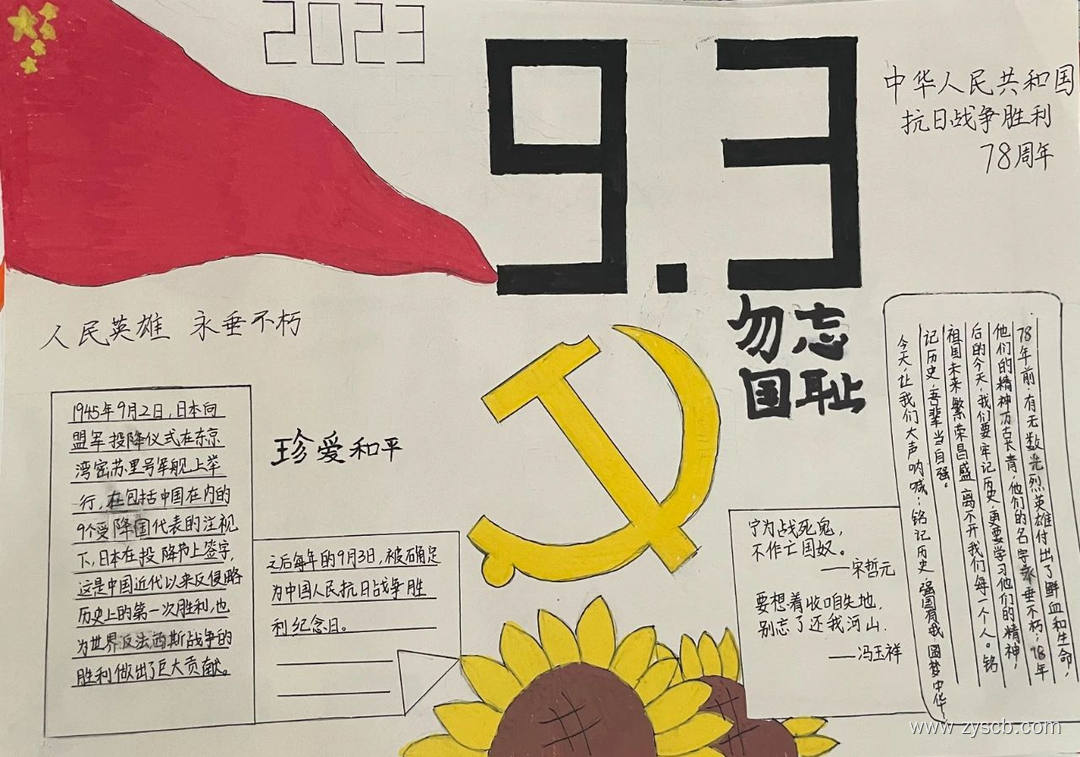 2023
9.3
中华人民共和国
抗日战争胜利
78周年
勿忘
国耻
人民英雄 永垂不朽
1945年9月2日,日本向
盟军投降仪式在东京
湾密苏里号军舰上举
行,在包括中国在内的
9个受降国代表的注视
下,日本在投降书上签字,
这是中国近代以来反侵略
历史上的第一次胜利,也
为世界反法西斯战争的
胜利做出了巨大贡献。
珍爱和平
之后每年的9月3日,被确定
为中国人民抗日战争胜
利纪念日。
宁为战死鬼,
不作亡国奴。
——宋哲元
要想着收咱失地,
别忘了还我河山.
——冯玉祥
78年前,有无数先烈英雄付出了鲜血和生命,
他们的精神万古长青,他们的名字永垂不朽;78年
后的今天,我们要牢记历史,更要学习他们的精神,
祖国未来繁荣昌盛离不开我们每一个人。铭
记历史,吾辈当自强。
今天,让我们大声呐喊:铭记历史 强国有我 圆梦中华
www.zyscb.com